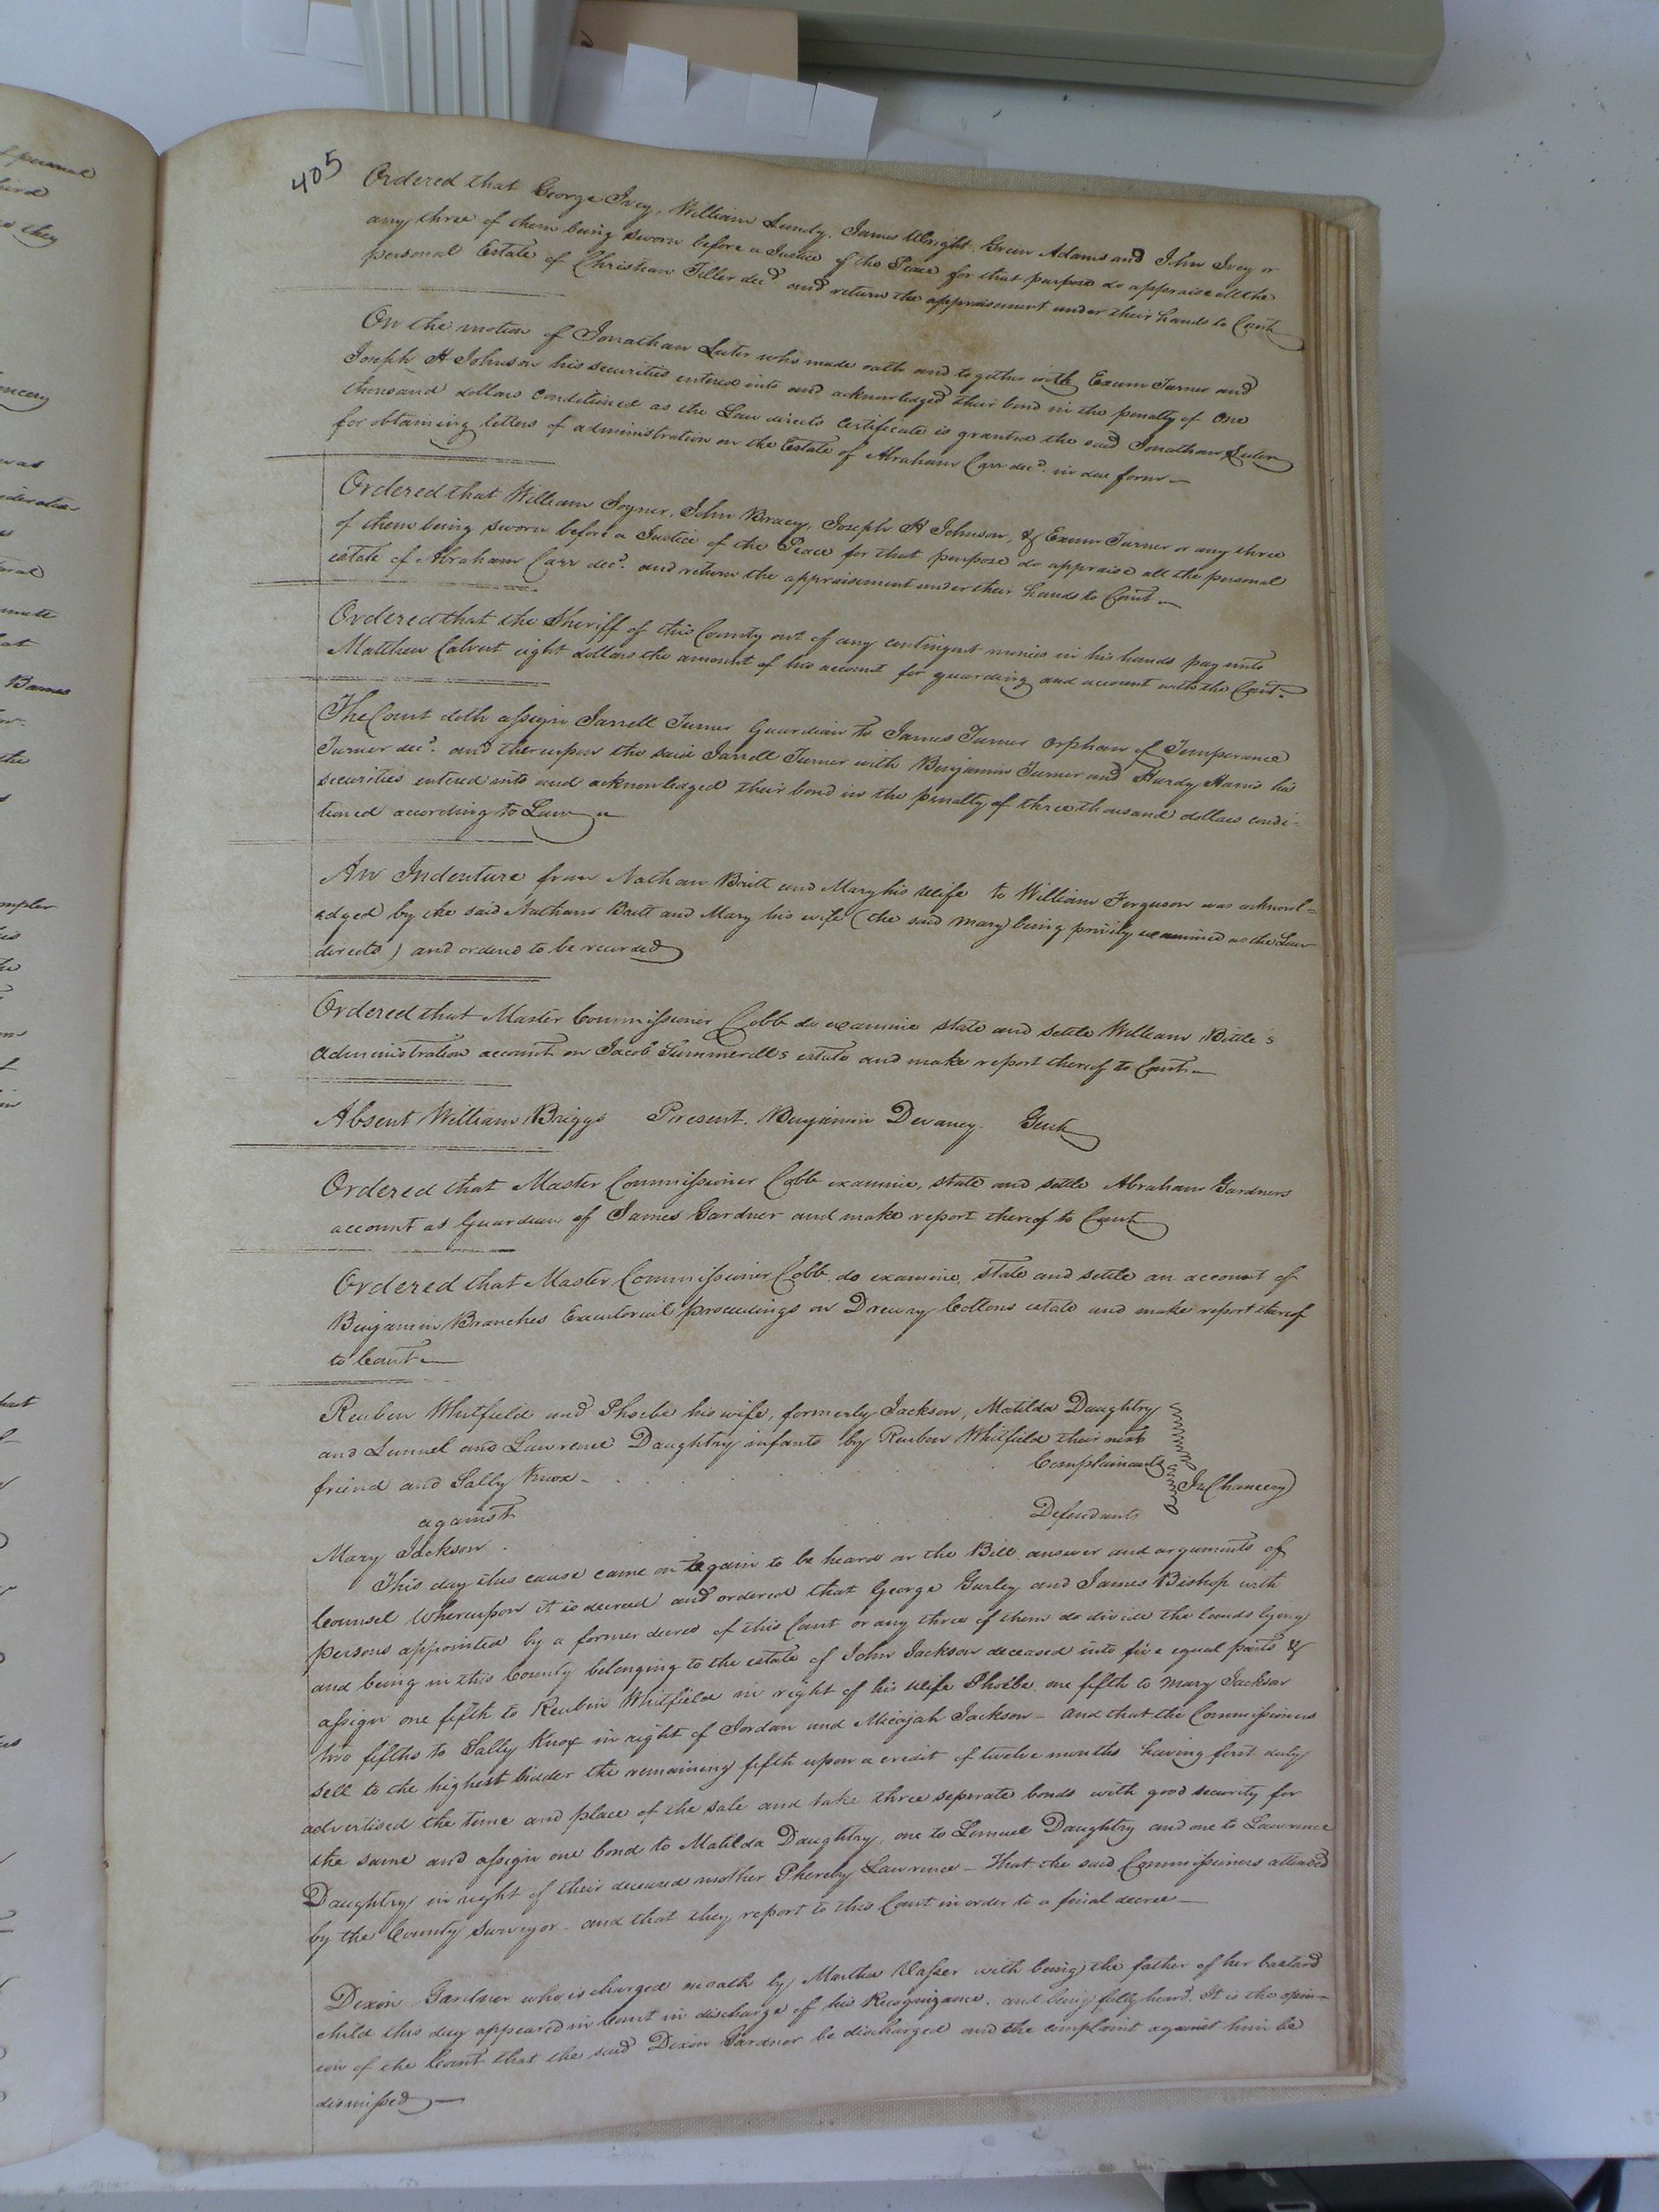 405
Ordered that George Ivey, William Lundy, James Wright, Green Adams and John Ivey or
any three of them being sworn before a Justice of the Peace for that purpose do appraise all the
personal Estate of Christian Tiller decd. and return the appraisement under their hands to Court
On the motion of Jonathan Luter who made oath and together with Exum Turner and
Joseph H Johnson his securities entered into and acknowledged their bond in the penalty of One
thousand dollars conditioned as the Law directs Certificate is granted the said Jonathan Luter
for obtaining letters of administration on the Estate of Abraham Carr decd. in due form
Ordered that William Joyner, John Bracey, Joseph H Johnson, & Exum Turner or any three
of them being sworn before a Justice of the Peace for that purpose do appraise all the personal
estate of Abraham Carr decd. and return the appraisement under their hands to Court
Ordered that the Sheriff of this County out of any contingent monies in his hands pay unto
Matthew Calvert eight dollars the amount of his account for guarding and account with the Court
The Court doth assign Jarrell Turner Guardian to James Turner orphan of Temperance
Turner decd. and thereupon the said Jarrell Turner with Benjamin Turner and Hardy Harris his
securities entered into and acknowledged their bond in the penalty of three thousand dollars condi-
tioned according to Law
An Indenture from Nathan Britt and Mary his wife to William Ferguson was acknowl=
edged by the said Nathan Britt and Mary his wife (the said Mary being privily examined as the Law
directs) and ordered to be recorded
Ordered that Master Commissioner Cobb do examine state and settle William Bittle's
administration account on Jacob Summerell's estate and make report thereof to Court
Absent William Briggs Present. Benjamin Devaney. Gent
Ordered that Master Commissioner Cobb examine, state and settle Abraham Gardners
account as Guardian of James Gardner and make report thereof to Court
Ordered that Master Commissioner Cobb do examine, state and settle an account of
Benjamin Branches Executorial proceedings on Drewry Cottons estate and make report thereof
to Court
Reuben Whitfield and Phoebe his wife, formerly Jackson, Matilda Daughtry
and Lemuel and Lawrence Daughtry infants by Reuben Whitfield their next
friend and Sally Knox - Complainants
In Chancery
against
Mary Jackson. Defendants
This day this cause came on again to be heard on the Bill answer and arguments of
Counsel Whereupon it is decreed and ordered that George Gurley and James Bishop with
persons appointed by a former decree of this Court or any three of them do divide the lands lying
and being in this County belonging to the estate of John Jackson deceased into five equal parts &
assign one fifth to Reuben Whitfield in right of his wife Phoebe, one fifth to Mary Jackson
two fifths to Sally Knox in right of Jordan and Micajah Jackson - and that the Commissioners
sell to the highest bidder the remaining fifth upon a credit of twelve months having first duly
advertised the time and place of the sale and take three seperate bonds with good security for
the same and assign one bond to Matilda Daughtry, one to Lemuel Daughtry and one to Lawrence
Daughtry in right of their deceased mother Phereby Lawrence - That the said Commissioners attended
by the County Surveyor - and that they report to this Court in order to a final decree -
Dixon Gardner who is charged on oath by Martha Vasser with being the father of her bastard
child this day appeared in Court in discharge of his Recognizance, and being fully heard. It is the opin-
ion of the Court that the said Dixon Gardner be discharged and the complaint against him be
dismissed -